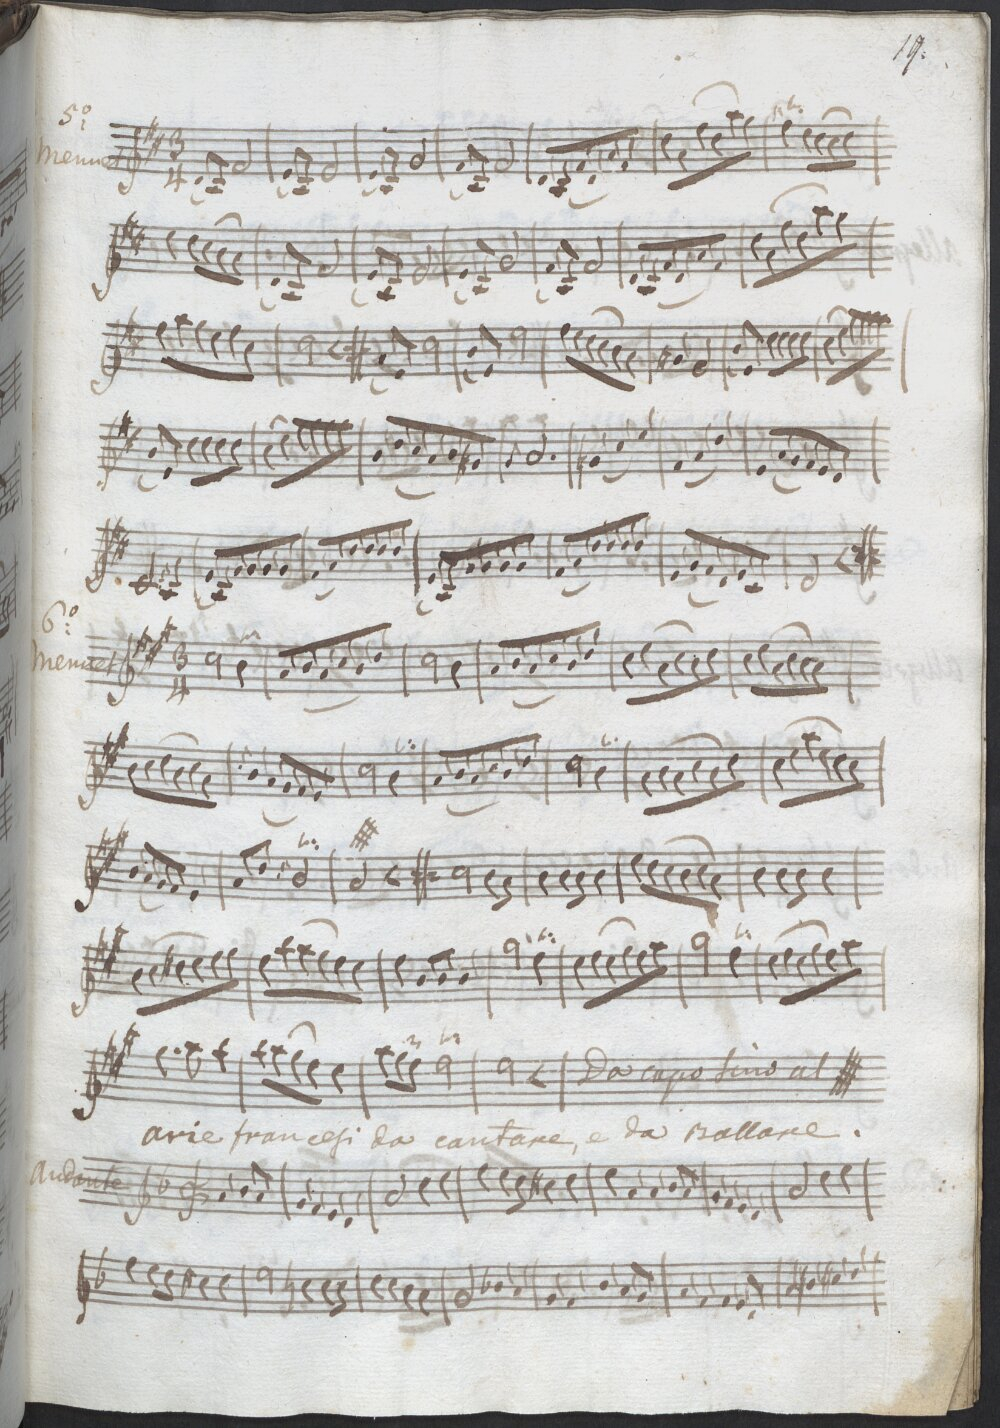 19.
5º
Menuet
3
4
6º
Menuet
3
4
Da capo sino al
arie francesi da cantare, e da Ballare.
Andante